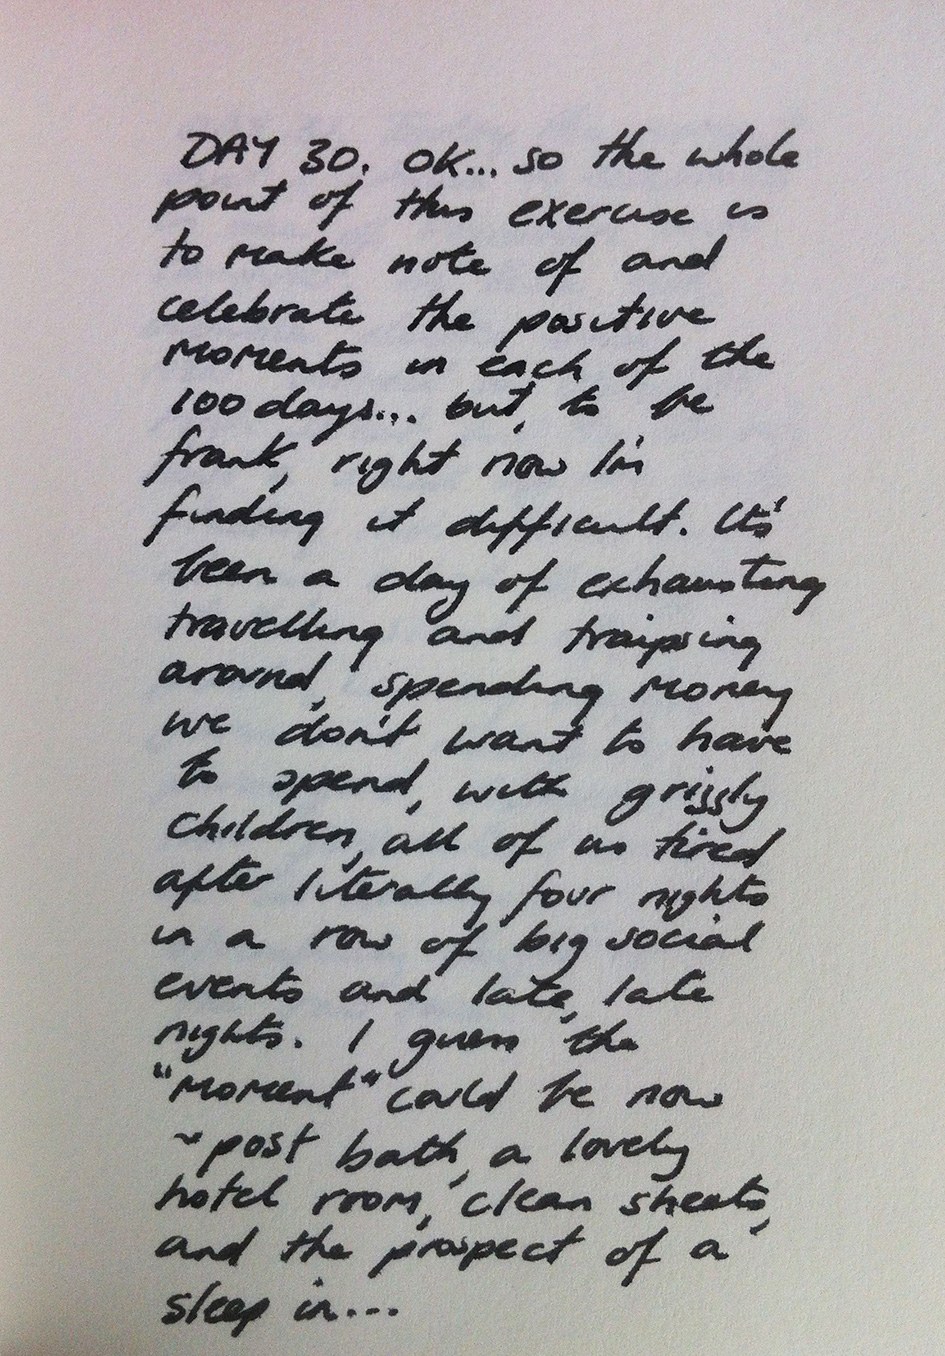 DAY 30. OK... so the whole
point of this exercise is
to make note of and
celebrate the positive
moments in each of the
100 days... but, to be
frank, right now I'm
finding it difficult. It's
been a day of exhausting
travelling and traipsing
around, spending money
we don't want to have
to spend, with grizzly
children, all of us tired
after literally four nights
in a row of big social
events and late, late
nights. I guess the
"moment" could be now
~ post bath, a lovely
hotel room, clean sheets,
and the prospect of a
sleep in...